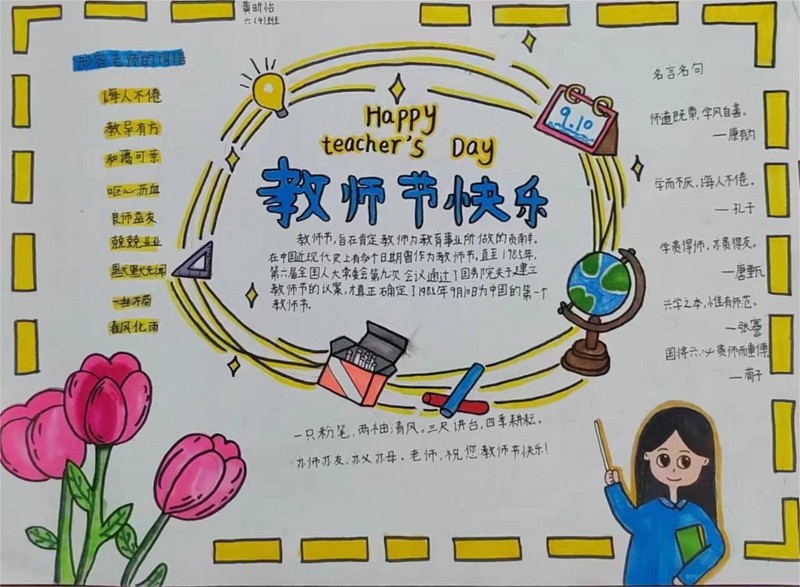 黄昕怡
六(4)班
形容老师的词语
诲人不倦
教导有方
和蔼可亲
呕心沥血
良师益友
兢兢业业
默默无闻
一丝不苟
春风化雨
Happy
teacher's Day
教师节快乐
9.10
教师节,旨在肯定教师为教育事业所做的贡献。
在中国近现代史上有多个日期曾作为教师节,直至1985年,
第六届全国人大常委会第九次会议通过了国务院关于建立
教师节的议案,才真正确定了1985年9月10日为中国的第一个
教师节。
一只粉笔,两袖清风。三尺讲台,四季耕耘。
亦师亦友,亦父亦母。老师,祝您教师节快乐!
名言名句
师道既尊,学风自善。
—康有为
学而不厌,诲人不倦。
—孔子
学贵得师,亦贵得友。
—唐甄
兴学之本,惟有师范。
—张謇
国将兴,必贵师而重傅
—荀子